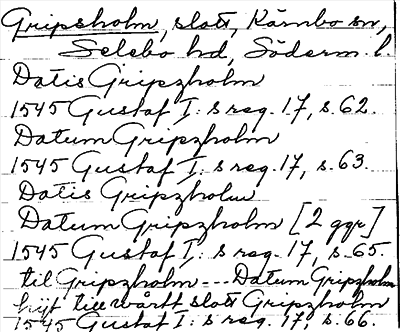 Gripsholm, slott, Kärnbo sn,
Selebo hd, Söderm. l.
Datis Gripzholm
1545 Gustaf I: s reg. 17, s. 62.
Datum Gripzholm
1545 Gustaf I: s reg. 17, s. 63.
Datis Gripzholm
Datum Gripzholm [2 ggr]
1545 Gustaf I: s reg. 17, s. 65.
til Gripzholm --- Datum Gripzholm
hijt till wårtt slott Gripzholm
1545 Gustaf I: s reg. 17, s. 66